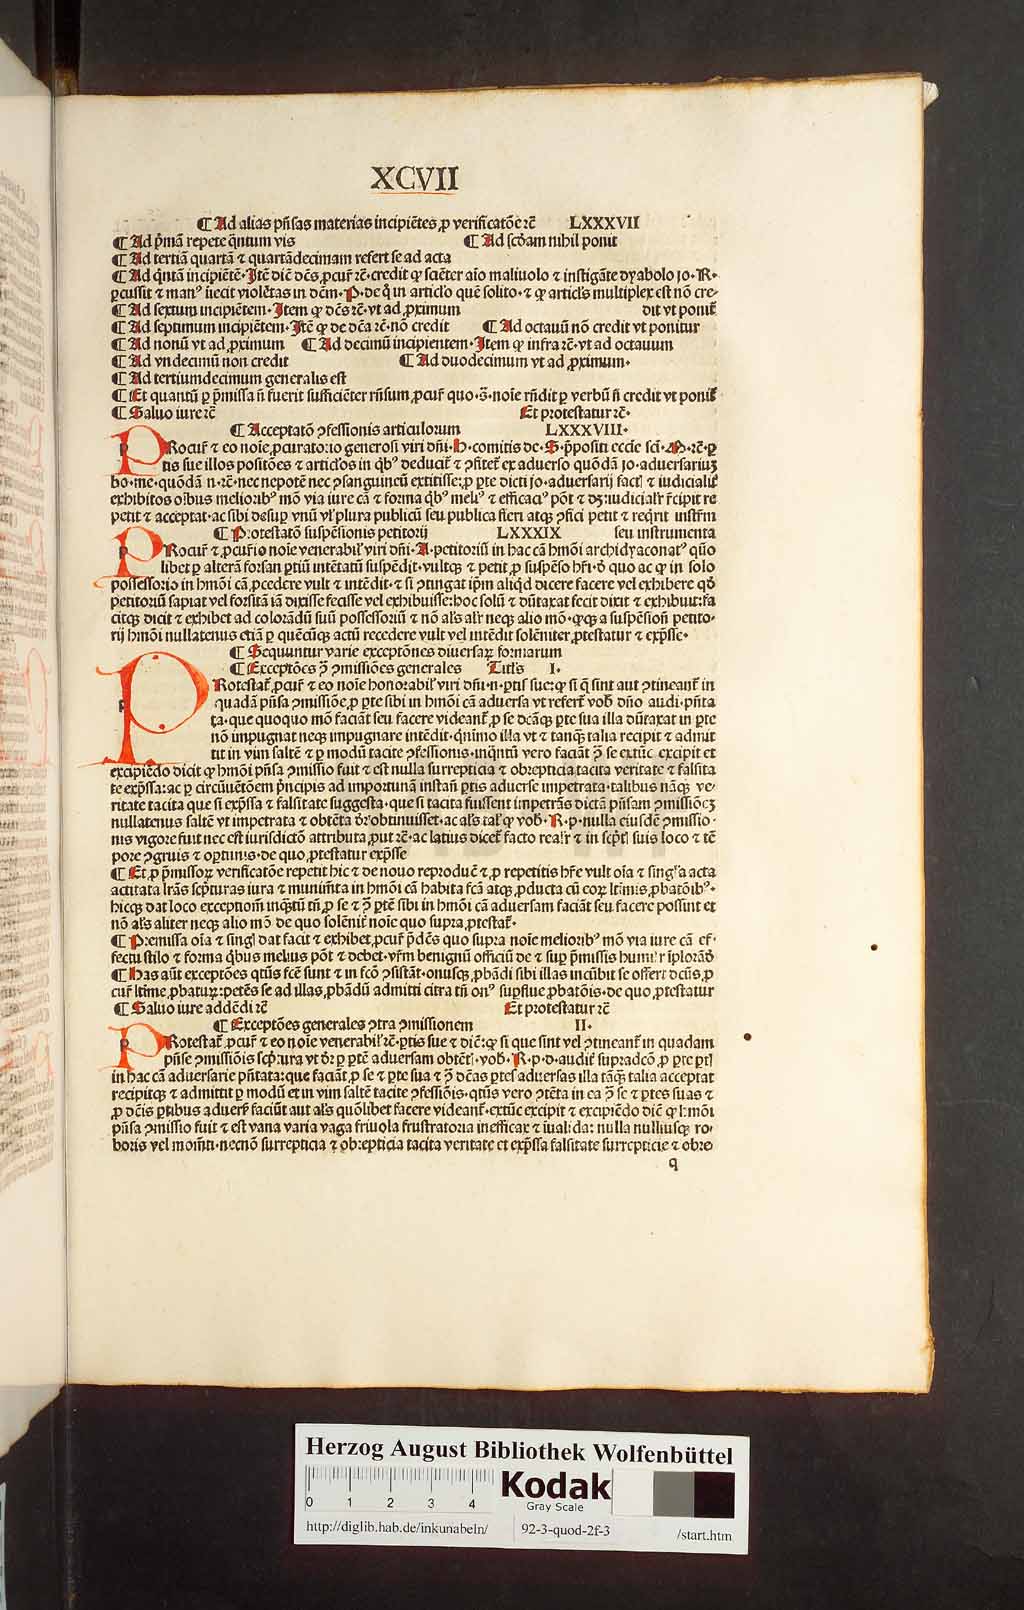 XCVII
¶ Ad alias pñsas materias incipiẽtes ꝓ verificatõe ⁊c̃ LXXXVII
¶ Ad p̃mã repete q̃ntum vis ¶ Ad scḋam nihil ponit
¶ Ad tertiã quartã ⁊ quartãdecimam refert se ad acta
¶ Ad q̃ntã incipiẽtẽ· Jtẽ dič dẽs ꝓcur̃ ⁊c̃· credit ꝙ sciẽter aĩo maliuolo ⁊ instigãte dyabolo jo· R·
ꝑcussit ⁊ manꝰ iĩecit violẽtas in dc̃m· P· de q̃ in articl̃o quẽ solito· ⁊ ꝙ articl̃s multiplex est nõ cre-
¶ Ad sextum incipientem· Jtem ꝙ dẽs ⁊c̃· vt ad ꝓximum dit vt ponit̃
¶ Ad septimum incipiẽtem· Jtẽ ꝙ de dc̃a ⁊c̃· nõ credit ¶ Ad octauũ nõ credit vt ponitur
¶ Ad nonũ vt ad ꝓximum ¶ Ad decimũ incipientem· Jtem ꝙ infra ⁊c̃· vt ad octauum
¶ Ad vndecimũ non credit ¶ Ad duodecimum vt ad ꝓximum·
¶ Ad tertiumdecimum generalis est
¶ Et quantũ ꝑ p̃missa ñ fuerit sufficiẽter rñsum ꝓcur̃ quo·s̃· noĩe rñdit ꝑ verbũ ñ credit vt ponit̃
¶ Saluo iure ⁊c̃ Et protestatur ⁊c̃·
¶ Acceptatõ ꝯfessionis articulorum LXXXVIII·
PRocur̃ ⁊ eo noĩe ꝓcurato:io generosi viri dñi· H· comitis de· S· p̃positi eccĩe sci̇· M· ⁊c̃· ꝑ
tis sue illos positões ⁊ articl̃os in q̃bꝰ deducit̃ ⁊ ꝯfitet̃ ex aduerso quõdã jo· aduersariuʒ
bo· me· quõdã n· ⁊c̃· nec nepotẽ nec ꝯsanguineũ extitisse: ꝓ ꝑte dicti jo· aduersarij facti̇ ⁊ iudicialit̃
exhibitos oĩbus melioribꝰ mõ via iure cã ⁊ forma q̃bꝰ meliꝰ ⁊ efficaciꝰ põt ⁊ dʒ: iudicialr̃ r̃cipit re
petit ⁊ acceptat· ac sibi desuꝑ vnũ vl̃ plura publicũ seu publica fieri atqʒ ꝯfici petit ⁊ req̃rit instr̃m
¶ Protestatõ suspẽsionis petitorij LXXXIX seu instrumenta
PRocur̃ ⁊ ꝓcur̃io noĩe venerabil̃ viri dñi· A· petitoriũ in hac cã hmõi archidyaconatꝰ quõ
libet ꝑ alterã forsan ꝑtiũ intẽtatũ suspẽdit· vultqʒ ⁊ petit ꝓ suspẽso hr̃i· ꝺ̃ quo ac ꝙ in solo
possessorio in hmõi cã ꝓcedere vult ⁊ intẽdit· ⁊ si ꝯtingat ip̃m aliq̃d dicere facere vel exhibere qḋ
petitoriũ sapiat vel forsitã iã dixisse fecisse vel exhibuisse: hoc solũ ⁊ dũtaxat fecit dixit ⁊ exhibuit: fa
citqʒ dicit ⁊ exhibet ad colorãdũ suũ possessoriũ ⁊ nõ als̃ alr̃ neqʒ alio mõ· ꝙqʒ a suspẽsion̄ petito-
rij hmõi nullatenus etiã ꝑ quẽcũqʒ actũ recedere vult vel intẽdit solẽniter ꝓtestatur ⁊ exp̃sse·
¶ Sequuntur varie exceptões diuersaꝝ formarum
¶ Exceptões ꝯ̃ ꝯmissiões generales Titl̃s I·
PRotestat̃ ꝓcur̃ ⁊ eo noĩe hono:abil̃ viri dñi· n· ptis sue: ꝙ si q̃ sint aut ꝯtineant̃ in
quadã pñsa ꝯmissiõe ꝓ ꝑte sibi in hmõi cã aduersa vt refert̃ vob̃ dño audi· pñta
ta· que quoquo mõ faciãt seu facere videant̃ ꝓ se dcãqʒ ꝑte sua illa dũtaxat in ꝑte
nõ impugnat neqʒ impugnare intẽdit· q̃nĩmo illa vt ⁊ tanqʒ talia recipit ⁊ admit
tit in vim saltẽ ⁊ ꝑ modũ tacite ꝯfessionis· inq̃ntũ vero faciãt ꝯ̃ se extũc excipit et
excipiẽdo dicit ꝙ hmõi pñsa ꝯmissio fuit ⁊ est nulla surrepticia ⁊ obrepticia tacita veritate ⁊ falsita
te exp̃ssa: ac ꝑ circũuẽtõem p̃ncipis ad importunã instañ ꝑtis aduerse impetrata· talibus nãqʒ ve-
ritate tacita que si exp̃ssa ⁊ falsitate suggesta· que si tacita fuissent impetrãs dictã pñsam ꝯmissiõeʒ
nullatenus saltẽ vt impetrata ⁊ obtẽta ꝺr̃ obtinuisset· ac als̃ tal̃ ꝙ vob̃· R· p· nulla eiusdẽ ꝯmissio-
nis vigore fuit nec est iurisdictõ attributa ꝓut ⁊c̃· ac latius dicet̃ facto realr̃ ⁊ in sc̃pti̇ suis loco ⁊ tẽ
pore ꝯgruis ⁊ oꝑtunis· de quo ꝓtestatur exp̃sse
¶ Et ꝓ p̃missoꝝ verificatõe repetit hic ⁊ de nouo reproducẽ ⁊ ꝓ repetitis hr̃e vult oĩa ⁊ singl̃a acta
actitata lr̃as sc̃pturas iura ⁊ munim̃ta in hmõi cã habita fcã atqʒ ꝓducta cũ eoꝝ ltĩmis ꝓbatõibꝰ·
hicqʒ dat loco exceptioñ inq̃tũ tñ ꝓ se ⁊ ꝯ̃ ꝑtẽ sibi in hmõi cã aduersam faciãt seu facere possint et
nõ als̃ aliter neqʒ alio mõ de quo solẽnit̃ noĩe quo supra ꝓtestat̃·
¶ Premissa oĩa ⁊ singl̃ dat facit ⁊ exhibet ꝓcur̃ p̃dẽs quo supra noĩe melioribꝰ mõ via iure cã ef-
fectu stilo ⁊ forma q̃bus melius põt ⁊ debet· vr̃m benignũ officiũ de ⁊ suꝑ p̃missis humilr̃ iploрãdõ
¶ Has aũt exceptões q̃tũs fcẽ sunt ⁊ in fcõ ꝯsistãt· onusqʒ ꝓbãdi sibi illas incũbit se offert dcũs ꝓ
cur̃ ltĩme ꝓbaturꝝ: petẽs se ad illas ꝓbãdũ admitti citra tñ onꝰ suꝑflue ꝓbatõis· de quo ꝓtestatur
¶ Saluo iure addẽdi ⁊c̃ Et protestatur ⁊c̃
¶ Exceptões generales ꝯtra ꝯmissionem II·
PRotestat̃ ꝓcur̃ ⁊ eo noĩe venerabil̃ ⁊c̃· ꝑtis sue ⁊ dicẽ: ꝙ si que sint vel ꝯtineant̃ in quadam
pñse ꝯmissiõis sc̃ptura vt ꝺr̃ ꝑ ꝑtẽ aduersam obtẽti̇· vob̃· R· p· d· audit̃ supradcõ ꝓ ꝑte ꝑti̇
in hac cã aduersarie pñtata: que faciãt ꝓ se ⁊ ꝑte sua ⁊ ꝯ̃ dcãs ꝑtes aduersas illa tãqʒ talia acceptat
recipitqʒ ⁊ admittit ꝑ modũ et in vim saltẽ tacite ꝯfessiõis· q̃tũs vero ꝯtẽta in ea ꝯ̃ se ⁊ ꝑtes suas ⁊
ꝓ dcẽis ꝑtibus aduers̃ faciũt aut als̃ quõlibet facere videant̃· extũc excipit ⁊ excipiẽdo dicẽ ꝙ hmõi
pñsa ꝯmissio fuit ⁊ est vana varia vaga friuola frustratoria inefficax ⁊ iualida: nulla nulliusqʒ ro-
boris vel momẽti· necnõ surrepticia ⁊ obrepticia tacita veritate et exp̃ssa falsitate surrepticie ⁊ obre
q
Herzog August Bibliothek Wolfenbüttel
0 1 2 3 4
Kodak
Gray Scale
http://diglib.hab.de/inkunabeln/ 92-3-quod-2f-3 /start.htm